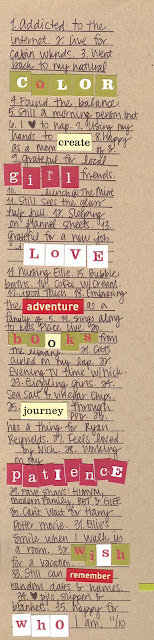 1. Addicted to the
internet. 2. Live for
cabin winds. 3. Went
back to my natural
COLOR
4. Found the balance
5. Still a morning person but
6. I ♥ to nap. 7. Using my
hands to create 8. Happy
as a mom
9. Grateful for local
girl friends.
10. lunch @ The Must
11. Still sees the glass
half full. 12. Sleeping
on flannel sheets. 13.
Grateful for a new job
LOVE
14. Nursing Ellie. 15. Bubble
baths. 16. Coffee w/ Cream.
17. Good Touch 18. Embracing
the adventure as a
family of 5. 19. Sings along
to Kids Place Live. 20.
books from
the library. 21. Cats
curled on my lap. 22.
Evening TV time w/ Nick.
23. Giggling girls. 24.
Sea Salt & Vinegar Chips.
25. journey through
P.E.P.
has a thing for Ryan
Reynolds. 27. Feels loved
by Nick. 28. Working
on my
PATIENCE
29. Fave Shows: HIMYM,
Modern Family, BBT & GLEE
30. Can't Wait for Harry
Potter movie. 31. Ellie's
Smile when I walk in
a room. 32. wish
for a vacation.
33. Still can remember
random dates & names.
34. ♥ pj's, slippers &
blankets. 35. Happy for
WHO I am. 11/10